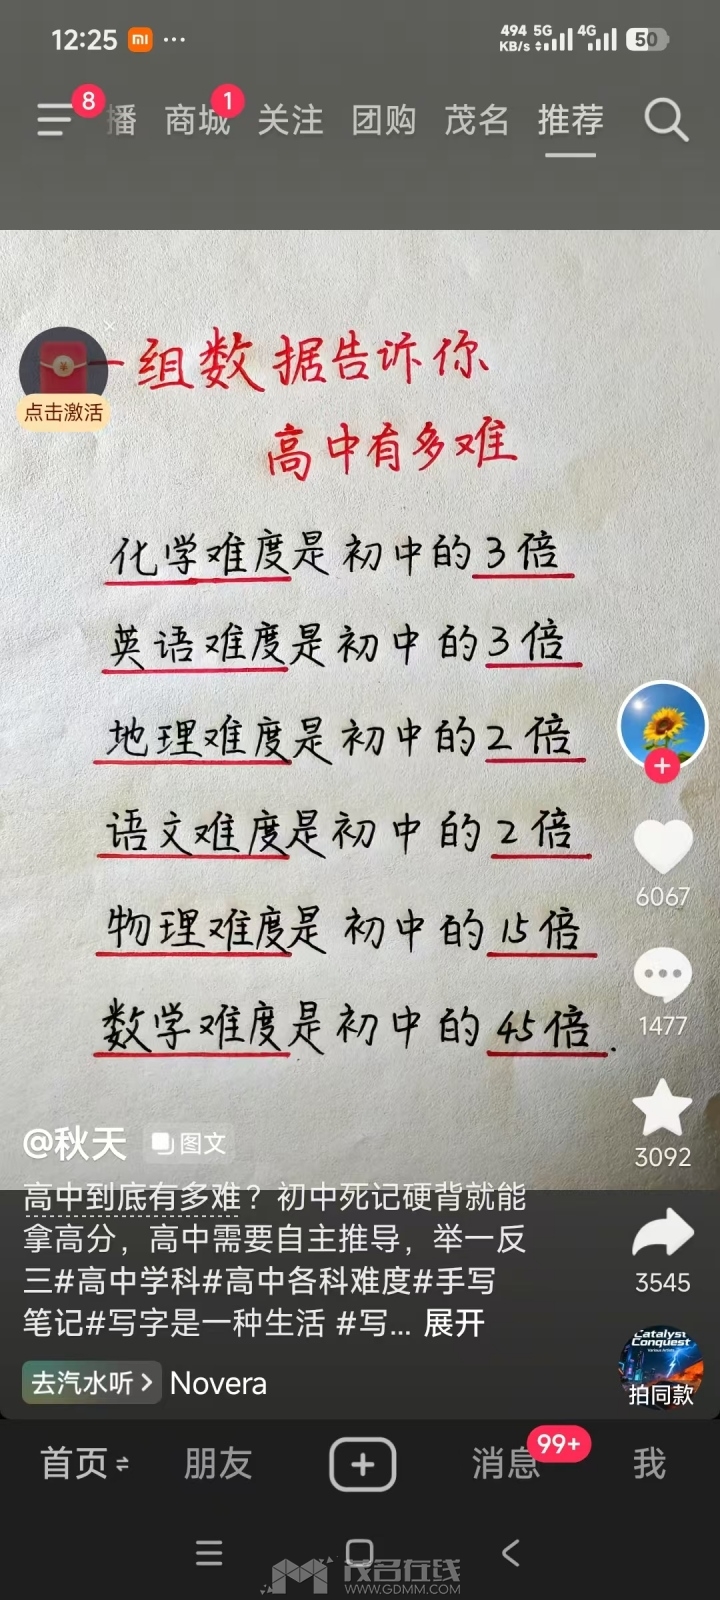 12:25
494 KB/s 5G 4G 50
8
播 商城 1 关注 团购 茂名 推荐
一组数据告诉你
点击激活
高中有多难
化学难度是初中的3倍
英语难度是初中的3倍
地理难度是初中的2倍
语文难度是初中的2倍
物理难度是初中的15倍
数学难度是初中的45倍.
6067
1477
3092
3545
@秋天 图文
高中到底有多难？初中死记硬背就能
拿高分，高中需要自主推导，举一反
三#高中学科#高中各科难度#手写
笔记#写字是一种生活 #写... 展开
Catalyst
Conquest
拍同款
去汽水听 > Novera
首页 朋友 消息 99+ 我
茂名在线
WWW.GDMM.COM